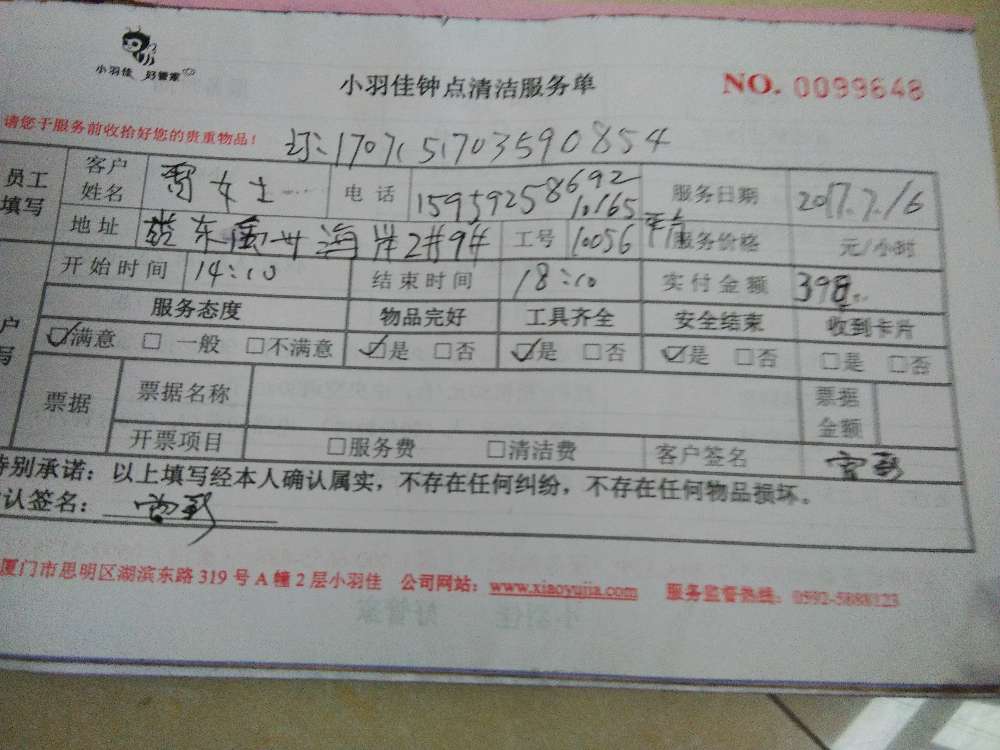 小羽佳 好管家
小羽佳钟点清洁服务单
NO. 0099648
请您于服务前收拾好您的贵重物品！
1707151703590854
员工填写
客户姓名 女士 电话 15959258692 服务日期 2017.7.16
地址 海岸2#9# 工号 10056 10165 服务价格 元/小时
开始时间 14:10 结束时间 18:10 实付金额 398
服务态度 物品完好 工具齐全 安全结束 收到卡片
☑满意 □一般 □不满意 ☑是 □否 ☑是 □否 ☑是 □否 □是 □否
票据 票据名称 票据金额
开票项目 □服务费 □清洁费 客户签名
特别承诺：以上填写经本人确认属实，不存在任何纠纷，不存在任何物品损坏。
认签名：
厦门市思明区湖滨东路 319 号 A 幢 2 层小羽佳 公司网站：www.xiaoyujia.com 服务监督热线：0592-5888123